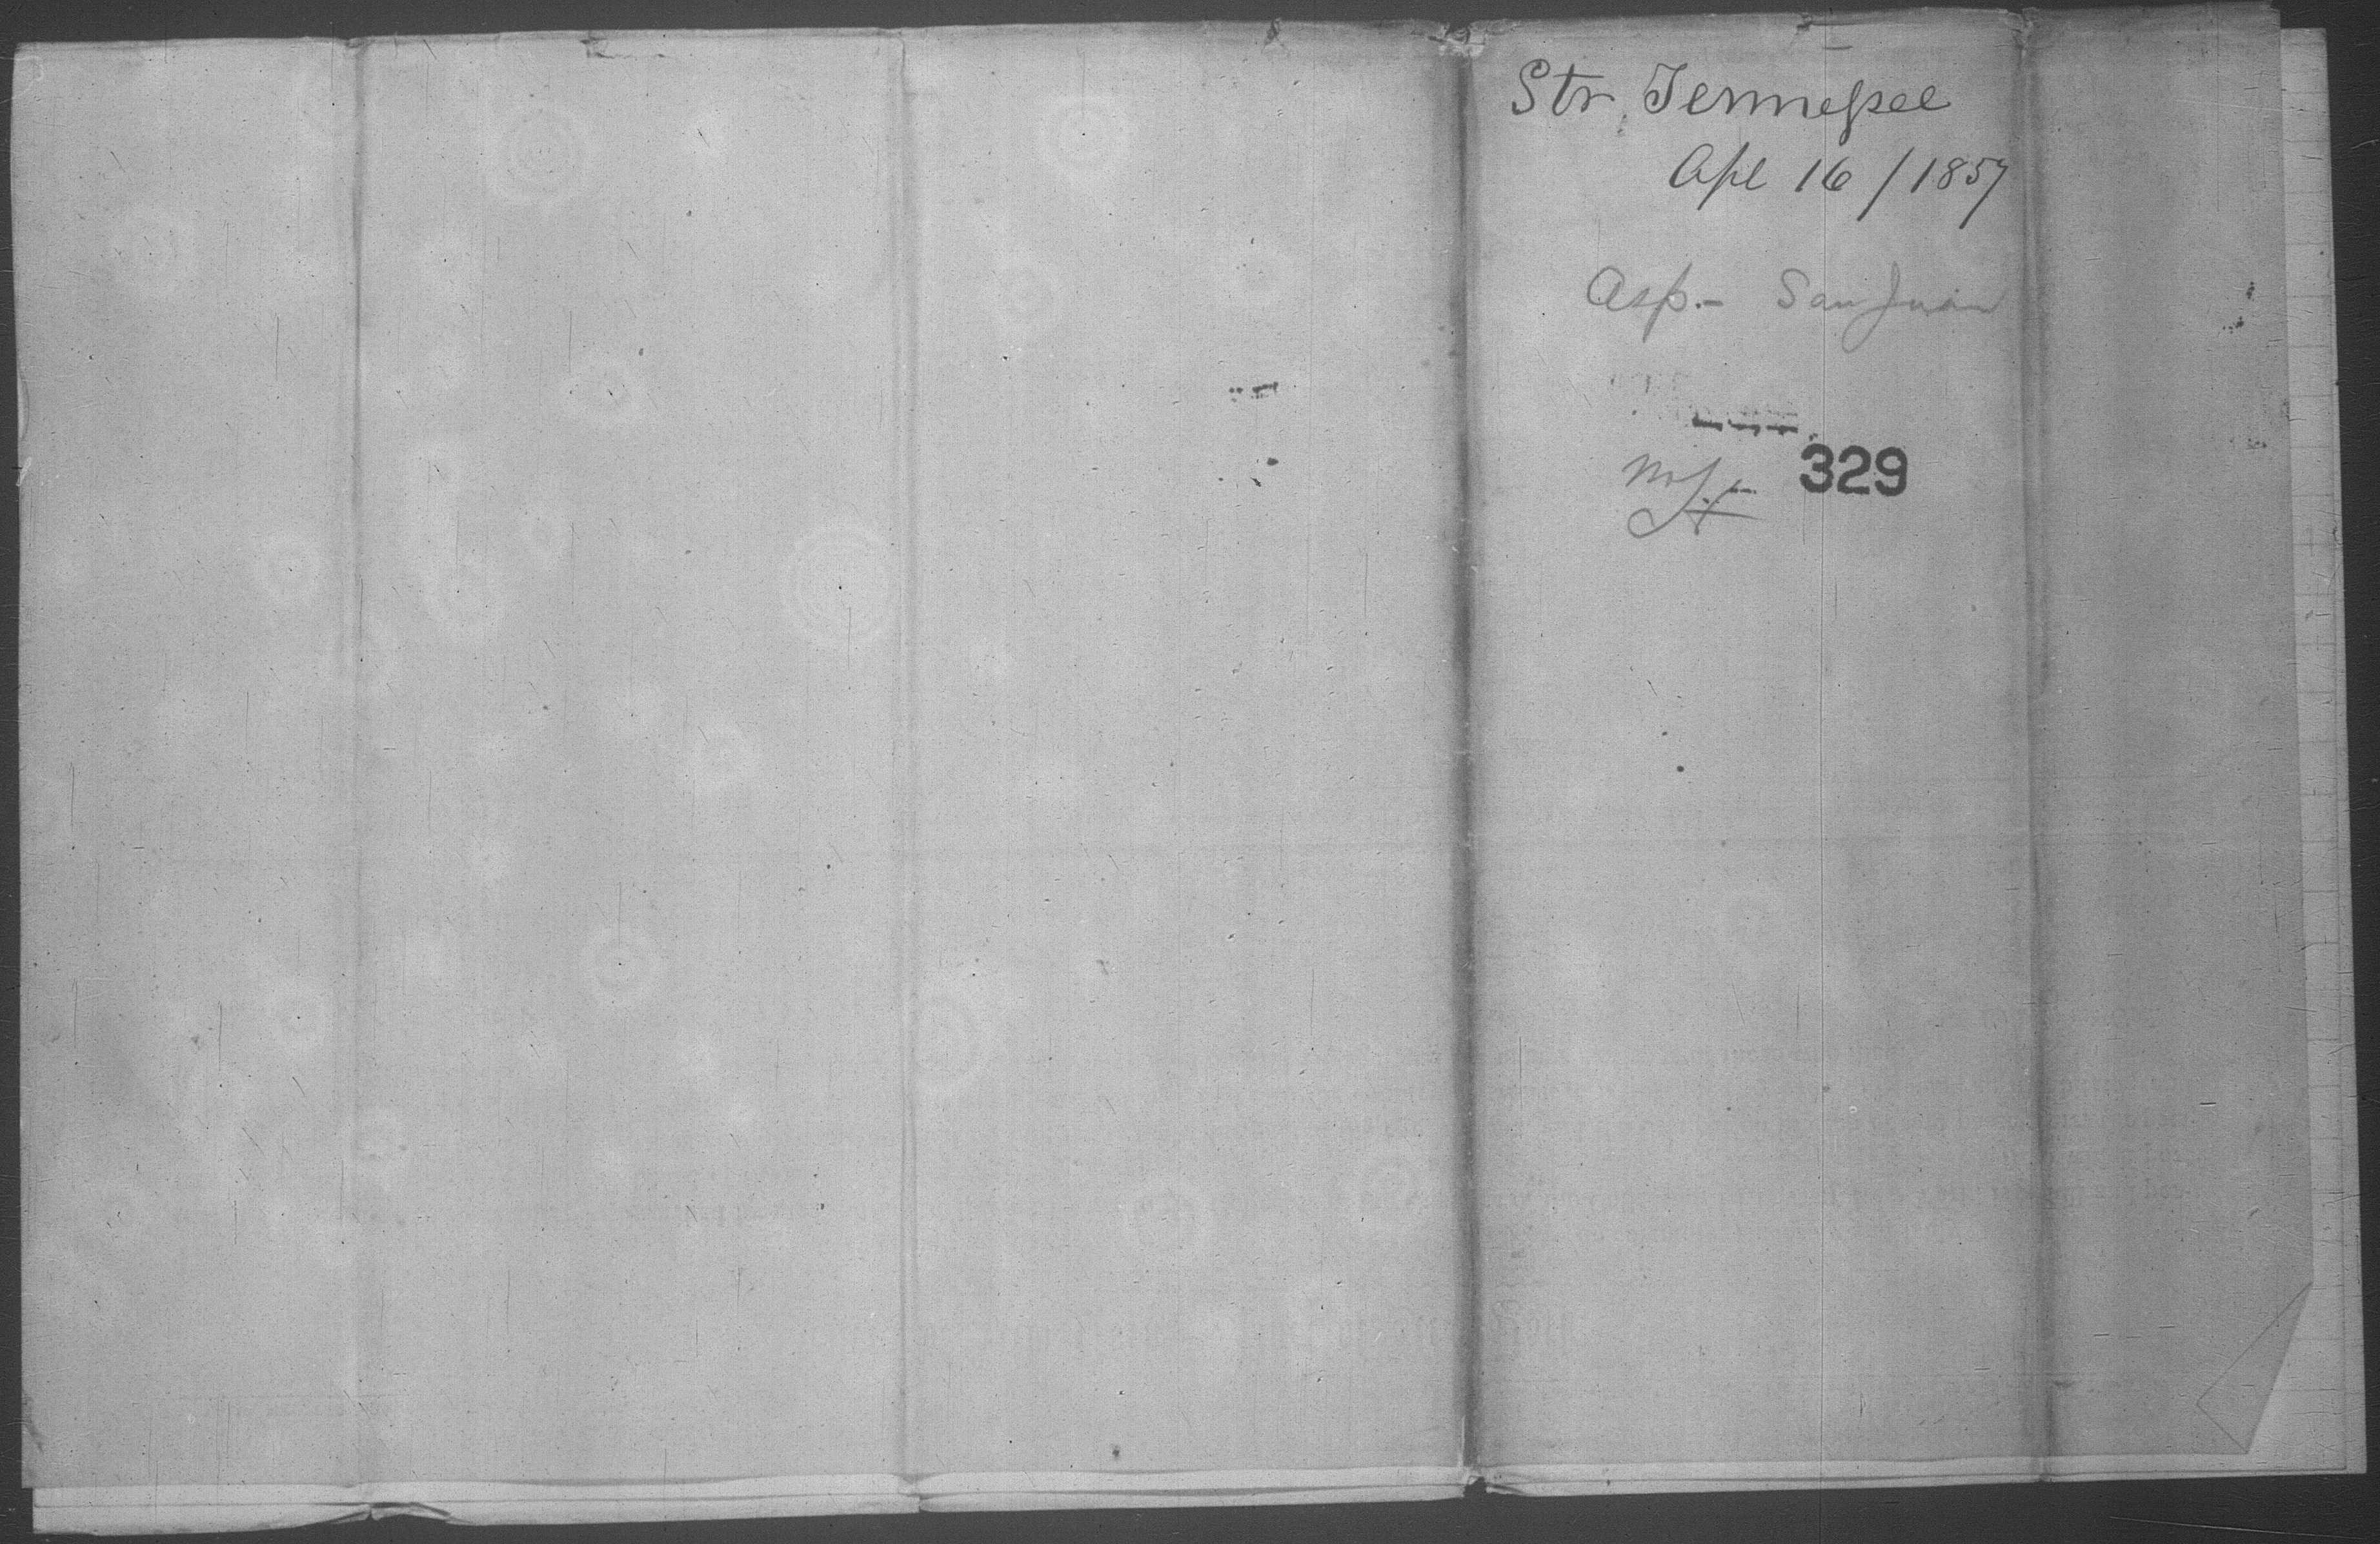 Str. Tennessee
Apl 16 / 1857
Asp.- San Juan
329